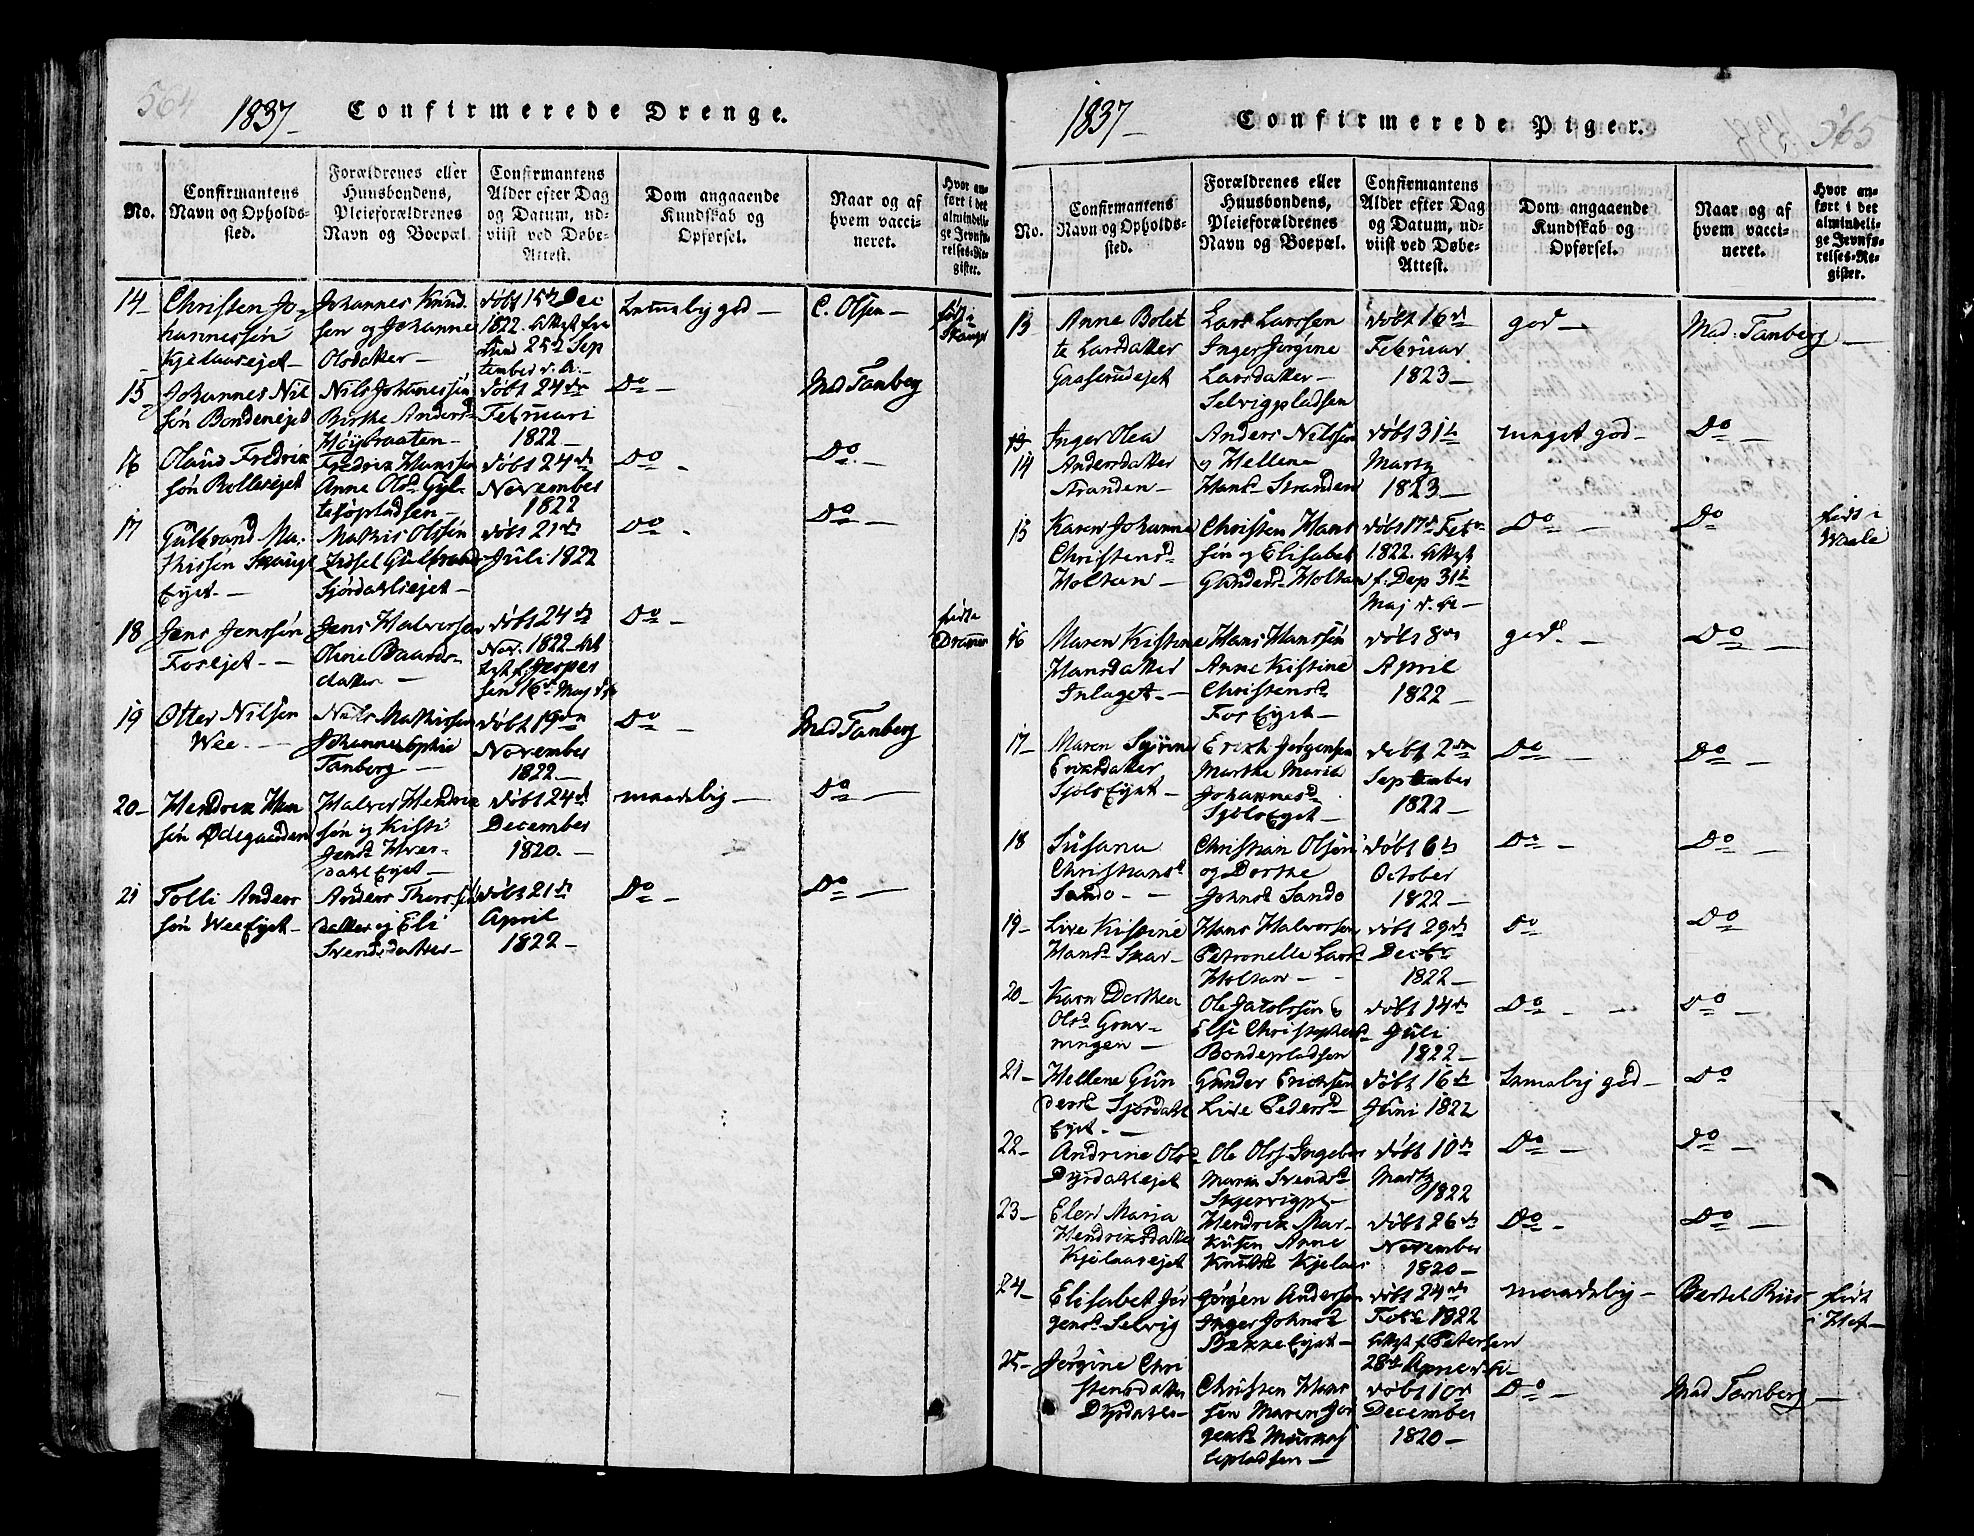 564
1837 Confirmerede Drenge.
No.
Confirmantens
Navn og Opholds-
sted.
Forældrenes eller
Huusbondens,
Pleieforældrenes
Navn og Boepæl.
Confirmantens
Alder efter Dag
og Datum, ud-
viist ved Døbe-
Attest.
Dom angaaende
Kundskab og
Opførsel.
Naar og af
hvem vacci-
neret.
Hvor an-
ført i det
almindeli-
ge Jevnfø-
relses-Re-
gister.
14
Christen Jo-
hannessøn
Kjelaasejet
Johannes Knud-
sen og Johanne
Olsdatter
døbt 15de Dec
1822. Attest fra
25de Sep
tember d. A.
god
C. Olsen
født i
Skauge
15
Johannes Nil
søn Bondenejet
Nils Johannessøn
Birthe Andersd
Høybraaten
døbt 24de
Februari
1822
Do
Mad Tanberg
16
Olaus Fredrik
søn Rollesejet
Fredrik Hanssen
Anne Olsd
døbt 24de
November
1822
Do
Do
17
Gulbrand Ma-
thissøn Skauge
Eyet
Mathis Olssøn
Zidsel Gulbrands
Sjørdahlsejet
døbt 21de
Juli 1822
Do
Do
18
Jens Jenssøn
Fosejet
Jens Halversen
Olene Baards-
datter
døbt 24de
Nov. 1822 At
test f. Jesper
sen 16de Maj
Do
født i
Drammen
19
Otter Nilsen
Wee
Niels Mathissen
Johanne Sophie
Tanberg
døbt 19den
November
1822
Do
Mad Tanberg
20
Hendrik Han
søn Ødegaarden
Halver Hendrik
søn og Kisti
Jensd
døbt 24de
December
1820.
maadelig
Do
21
Tolli Anders
søn WeeEyet
Anders Thorssøn
datter og Eli
Svendsdatter
døbt 21de
April
1822
Do
Do
1837 Confirmerede Piger.
565
No.
Confirmantens
Navn og Opholds-
sted.
Forældrenes eller
Huusbondens,
Pleieforældrenes
Navn og Boepæl.
Confirmantens
Alder efter Dag
og Datum, ud-
viist ved Døbe-
Attest.
Dom angaaende
Kundskab og
Opførsel.
Naar og af
hvem vacci-
neret.
Hvor an-
ført i det
almindeli-
ge Jevnfø-
relses-Re-
gister.
13
Anne Bolet
te Larsdatter
Gaaserudejet
Lars Larssen
Inger Jørgine
Larsdatter
Selvigpladsen
døbt 16de
Februar
1823
god
Mad. Tanberg
13
14
Inger Olea
Andersdatter
Stranden
Anders Nilssen
og Hellene
Hansd Stranden
døbt 31te
Marts
1823
meget god
Do
15
Karen Johanne
Christensd
Holtan
Christen Hans
søn og Elisabet
Gundersd Holtan
døbt 17de Febr
1822. Attest
f. Dep 31te
Maj d. A.
Do
Do
født i
Waale
16
Maren Kistine
Hansdatter
Inlaget
Hans Hanssøn
Anne Kistine
Christensd
Fos Eyet
døbt 8de
April
1822
god
Do
17
Maren
Eriksdatter
SjølsEyet
Erik Jørgensen
Marthe Maria
Johannesd
SjølsEyet
døbt 2den
September
1822
Do
Do
18
Susana
Christiansd
Sando
Christian Olsøn
og Dorthe
Johnsd Sando
døbt 6te
October
1822
Do
Do
19
Live Kistine
Hansd Skar
Hans Halvorsen
Petronelle Larsd
Holtan
døbt 29de
Decbr
1822
Do
Do
20
Karn Dorthea
Olsd Gron-
ningen
Ole Jacobssøn
Else Christophersd
Bondepladsen
døbt 14de
Juli
1822
Do
Do
21
Hellene Gun
dersd Sjørdahl
Eyet
Gunder Ericksen
Live Pedersd
døbt 16de
Juni 1822
god
Do
22
Andrine Olsd
Dyrdahlsejet
Ole Olss Ingebor
Maria Svendsd
døbt 10de
Marts
1822
Do
Do
23
Eleri Maria
Hendriksdatter
Kjelaasejet
Hendrik Mar-
kusen Anne
Knudsd Kjelaas
døbt 26de
November
1820
Do
Do
24
Elisabet Jør
gensd Selvig
Jørgen Andersen
Inger Johnsd
BakkeEyet
døbt 24de
Febr 1822
Attest f. Petersen
28de
maadelig
Bertel Riis
født
i Hof
25
Jørgine Chri
stensdatter
Dyrdahls
Christen Hans
søn Maren Jør
gensd
pladsen
døbt 10de
December
1820
Do
Mad Tanberg